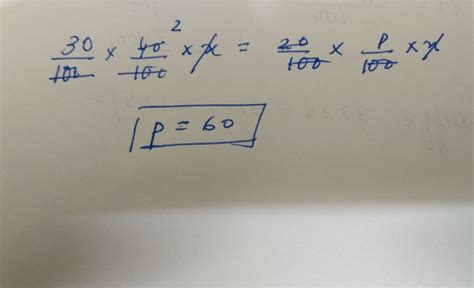 30/100 × 40/100 2 × x = 20/100 × P/100 × x
P = 60